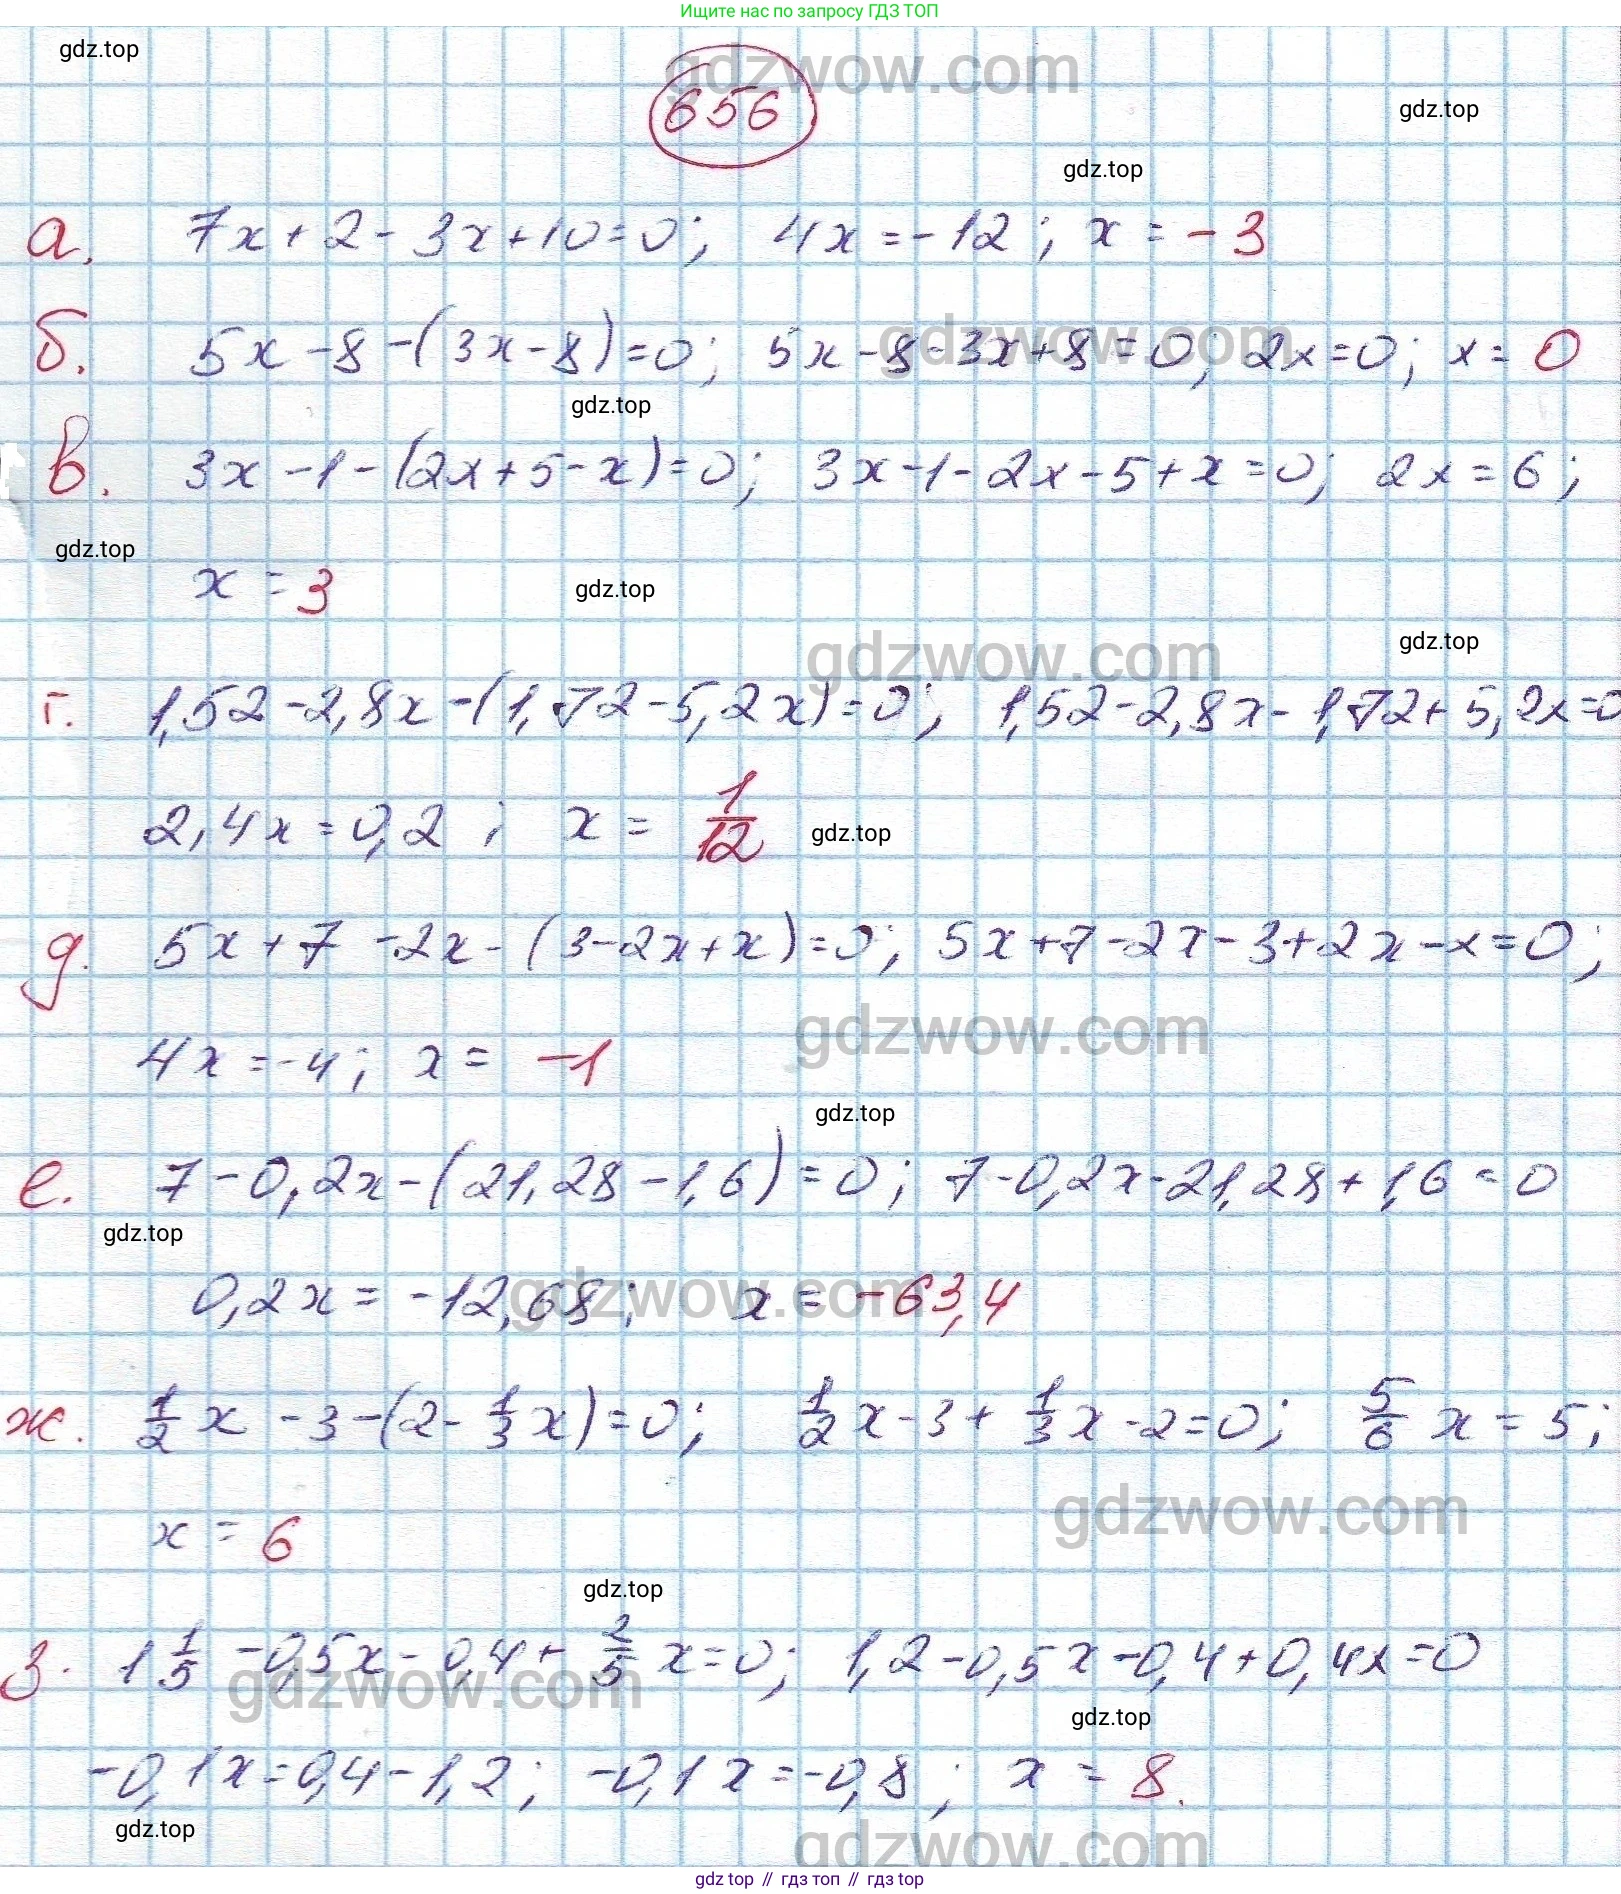 Ищите нас по запросу ГДЗ ТОП
gdz.top
gdzwow.com
656
gdz.top
gdz.top
а. 7x+2-3x+10=0; 4x=-12; x=-3
gdzwow.com
б. 5x-8-(3x-8)=0; 5x-8-3x+8=0; 2x=0; x=0
gdz.top
в. 3x-1-(2x+5-x)=0; 3x-1-2x-5+x=0; 2x=6;
gdz.top
x=3
gdz.top
gdz.top
gdzwow.com
г. 1,52-2,8x-(1,72-5,2x)=0; 1,52-2,8x-1,72+5,2x=0
2,4x=0,2; x=1/12
gdz.top
д. 5x+7-2x-(3-2x+x)=0; 5x+7-2x-3+2x-x=0;
gdzwow.com
4x=-4; x=-1
gdz.top
е. 7-0,2x-(21,28-1,6)=0; 7-0,2x-21,28+1,6=0
gdz.top
gdzwow.com
0,2x=-12,68; x=-63,4
ж. 1/2x-3-(2-1/3x)=0; 1/2x-3+1/3x-2=0; 5/6x=5;
gdzwow.com
x=6
gdz.top
з. 1 1/5-0,5x-0,4+2/5x=0; 1,2-0,5x-0,4+0,4x=0
gdzwow.com
gdz.top
-0,1x=0,4-1,2; -0,1x=-0,8; x=8.
gdz.top
gdzwow.com
gdz top // гдз топ // gdz top